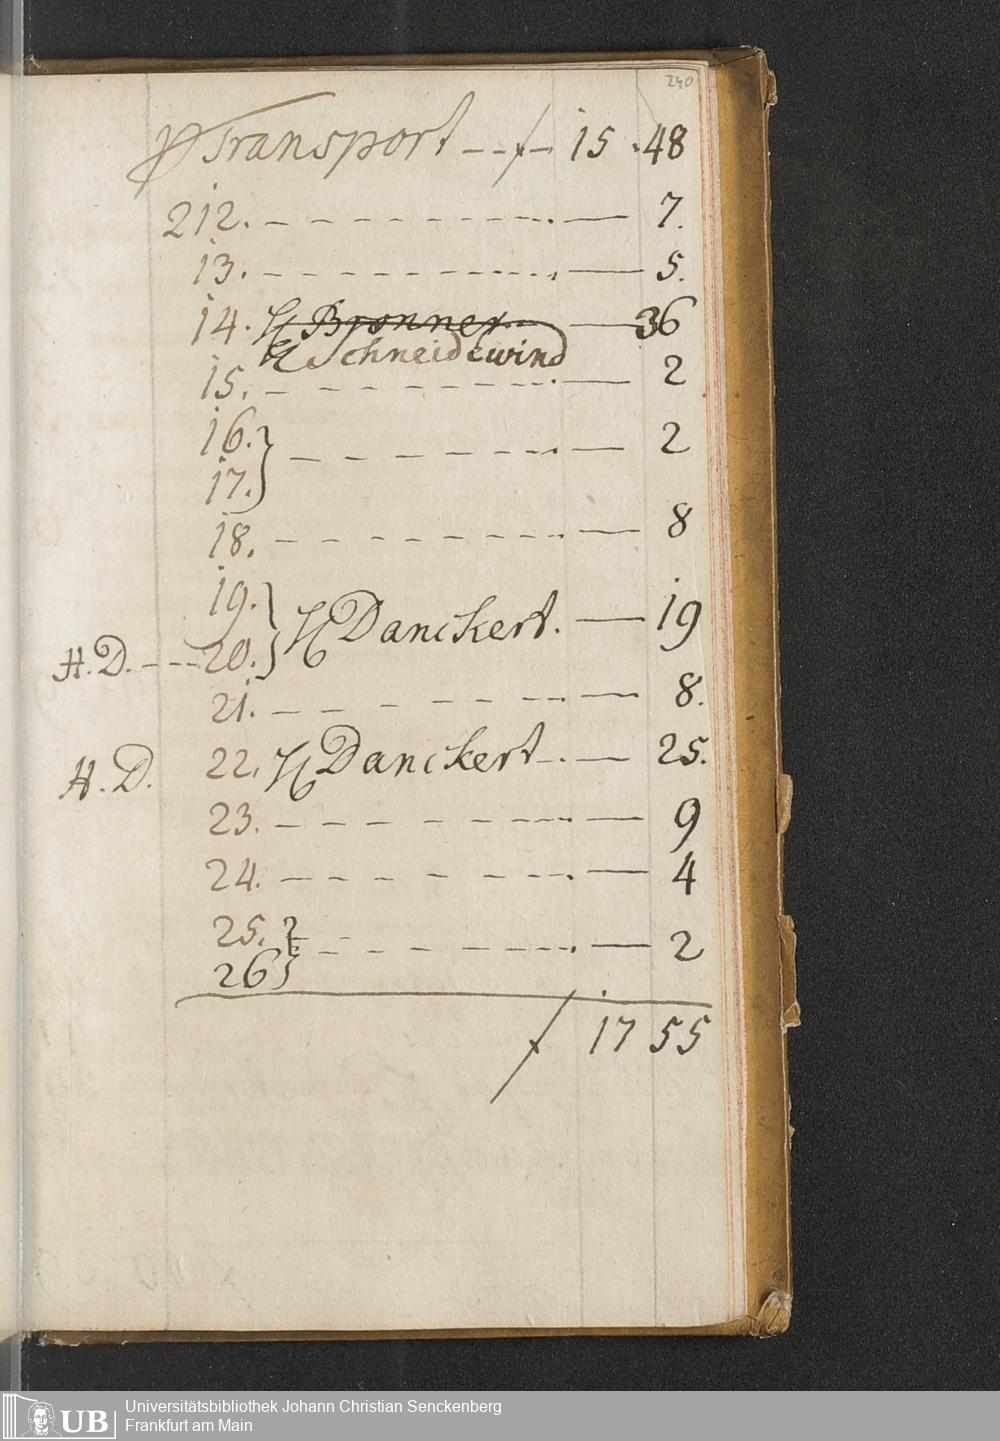 240
P Transport - - f - 15 . 48
212. - - - - - - - - - . — 7.
13. - - - - - - - - - . — 5.
14. H Bronner - - — 36
H Schneidewind
15. - - - - - - - . — 2
16. } - - - - - - . — 2
17.
18. - - - - - - - - . — 8
19. } H Danckert. — 19
H. D. - - - 20.
21. - - - - - - - . — 8.
H. D. 22. H Danckert - . — 25.
23. - - - - - - - - . — 9
24. - - - - - - - - . — 4
25. } - - - - - - - . — 2
26
f 17 55
UB Universitätsbibliothek Johann Christian Senckenberg
Frankfurt am Main